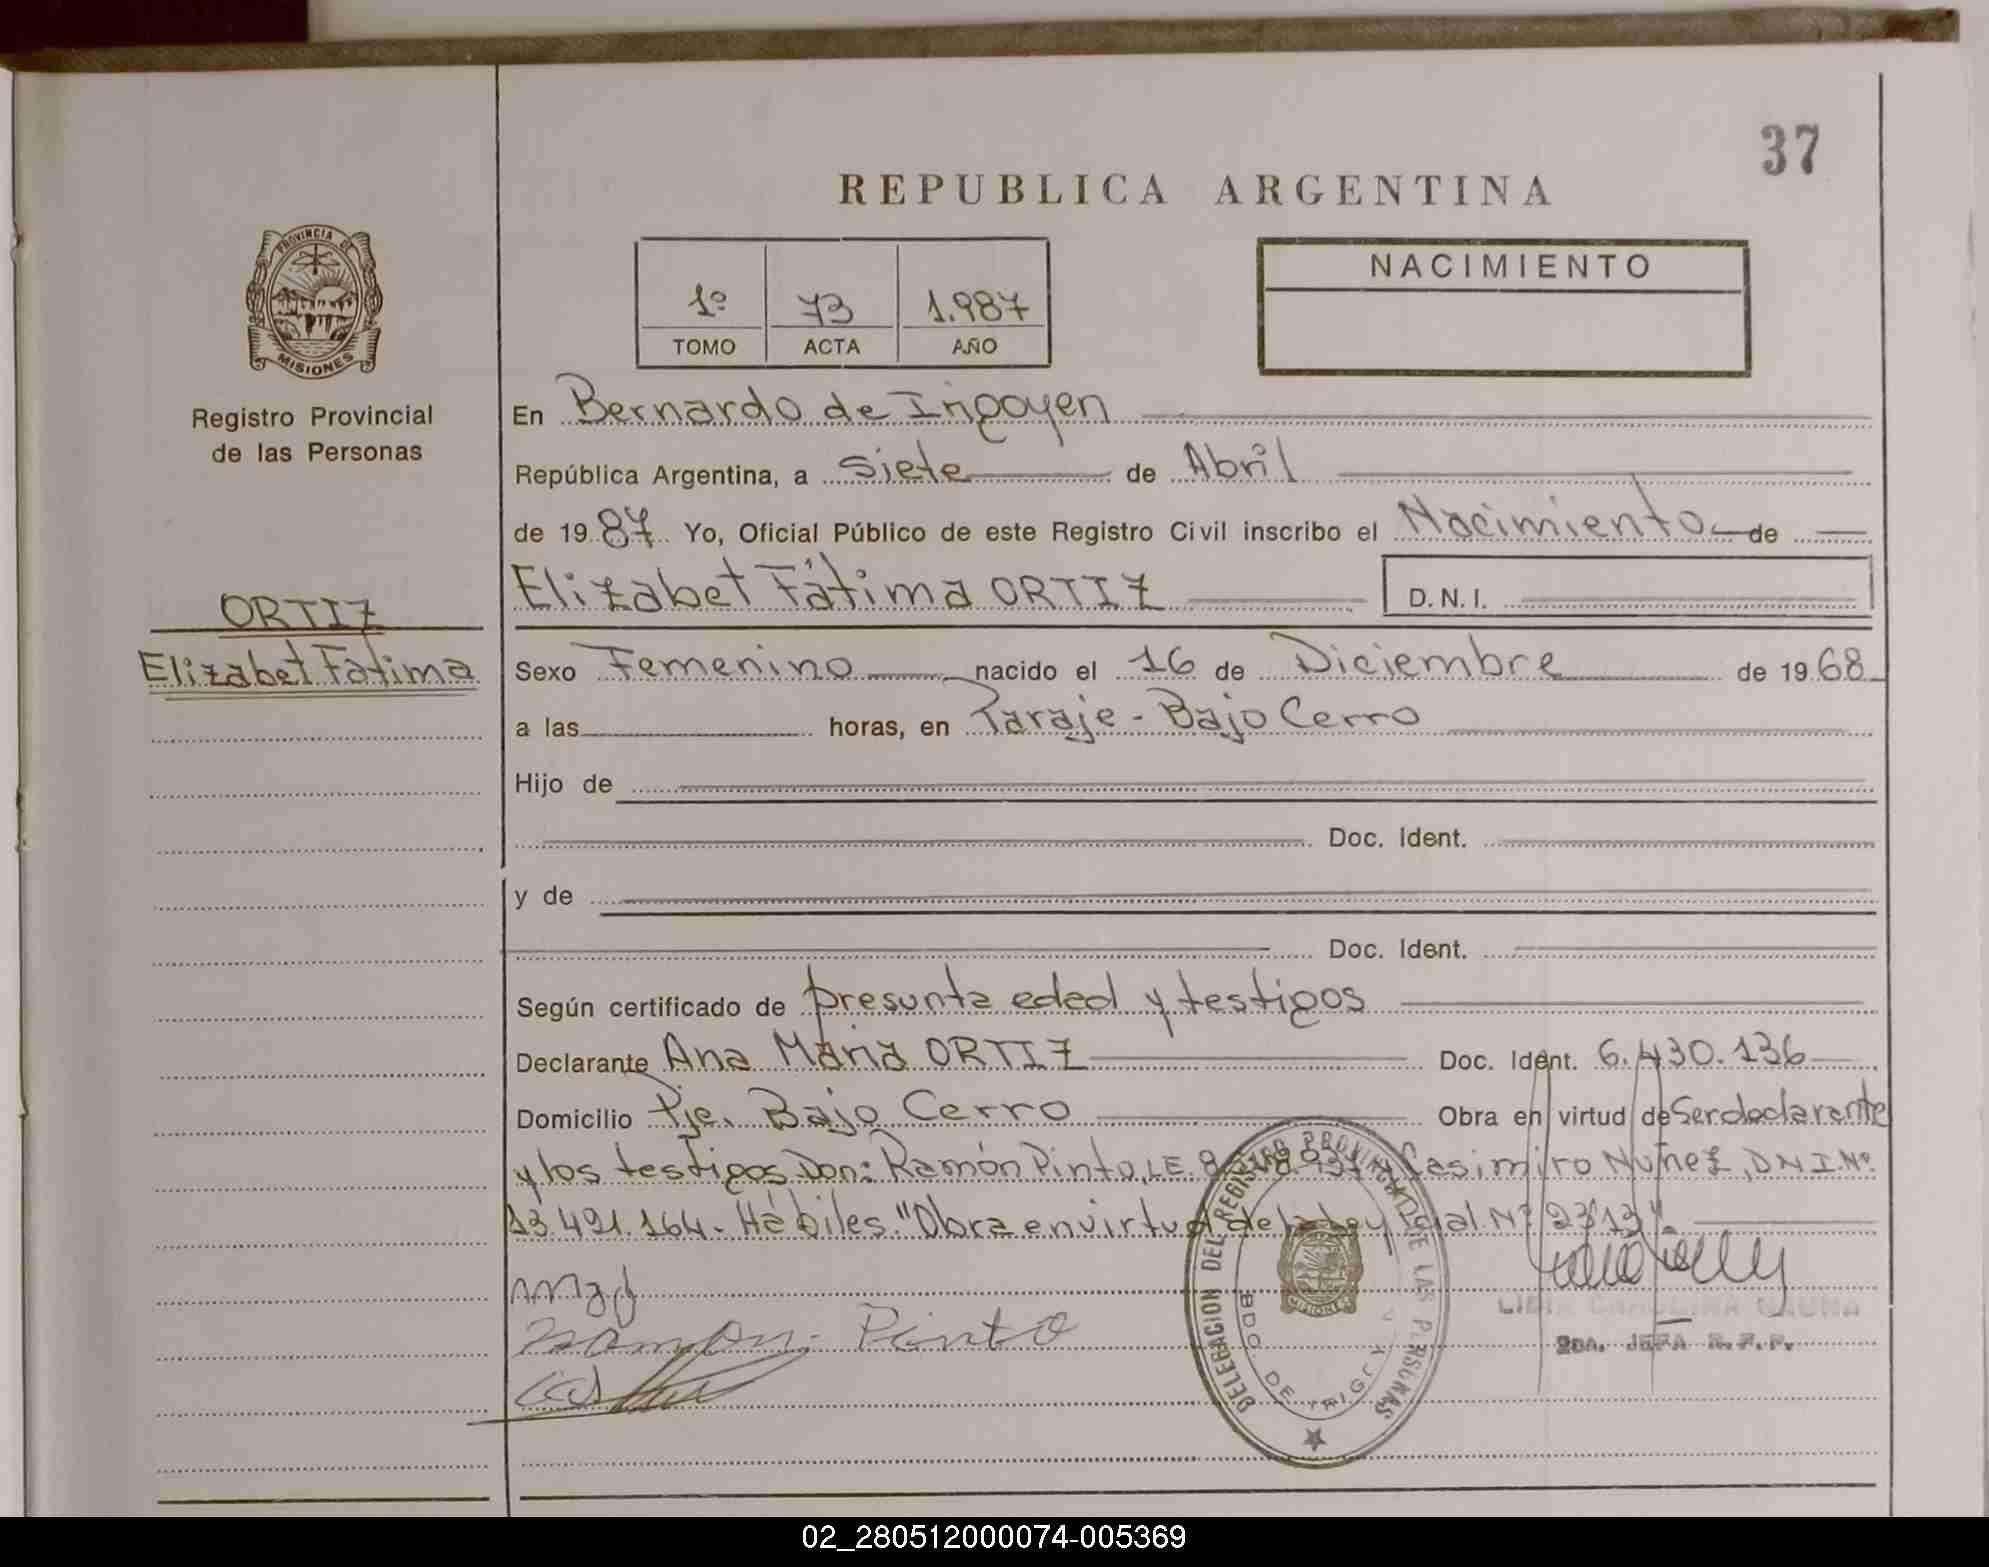 37
REPUBLICA ARGENTINA
PROVINCIA DE
MISIONES
Registro Provincial
de las Personas
1º 73 1.987
TOMO ACTA AÑO
NACIMIENTO
En Bernardo de Irigoyen
República Argentina, a Siete de Abril
de 1987 Yo, Oficial Público de este Registro Civil inscribo el Nacimiento de
Elizabet Fátima ORTIZ D.N.I.
ORTIZ
Elizabet Fátima
Sexo Femenino nacido el 16 de Diciembre de 1968
a las horas, en Paraje - Bajo Cerro
Hijo de
Doc. Ident.
y de
Doc. Ident.
Según certificado de presunta edad y testigos
Declarante Ana Maria ORTIZ Doc. Ident. 6.430.136
Domicilio Pje. Bajo Cerro Obra en virtud de Ser declarante
y los testigos Don: Ramón Pinto, L.E. y Casimiro Nuñez, D.N.I. Nº
13.491.164.- Hábiles. "Obra en virtud de la Ley Pcial. Nº 2313".
Ramon Pinto
DELEGACION DEL REGISTRO PROVINCIAL DE LAS PERSONAS
BDO. DE IRIGOYEN
MISIONES
LIDIA CAROLINA
2DA. JEFA R.P.P.
02_280512000074-005369